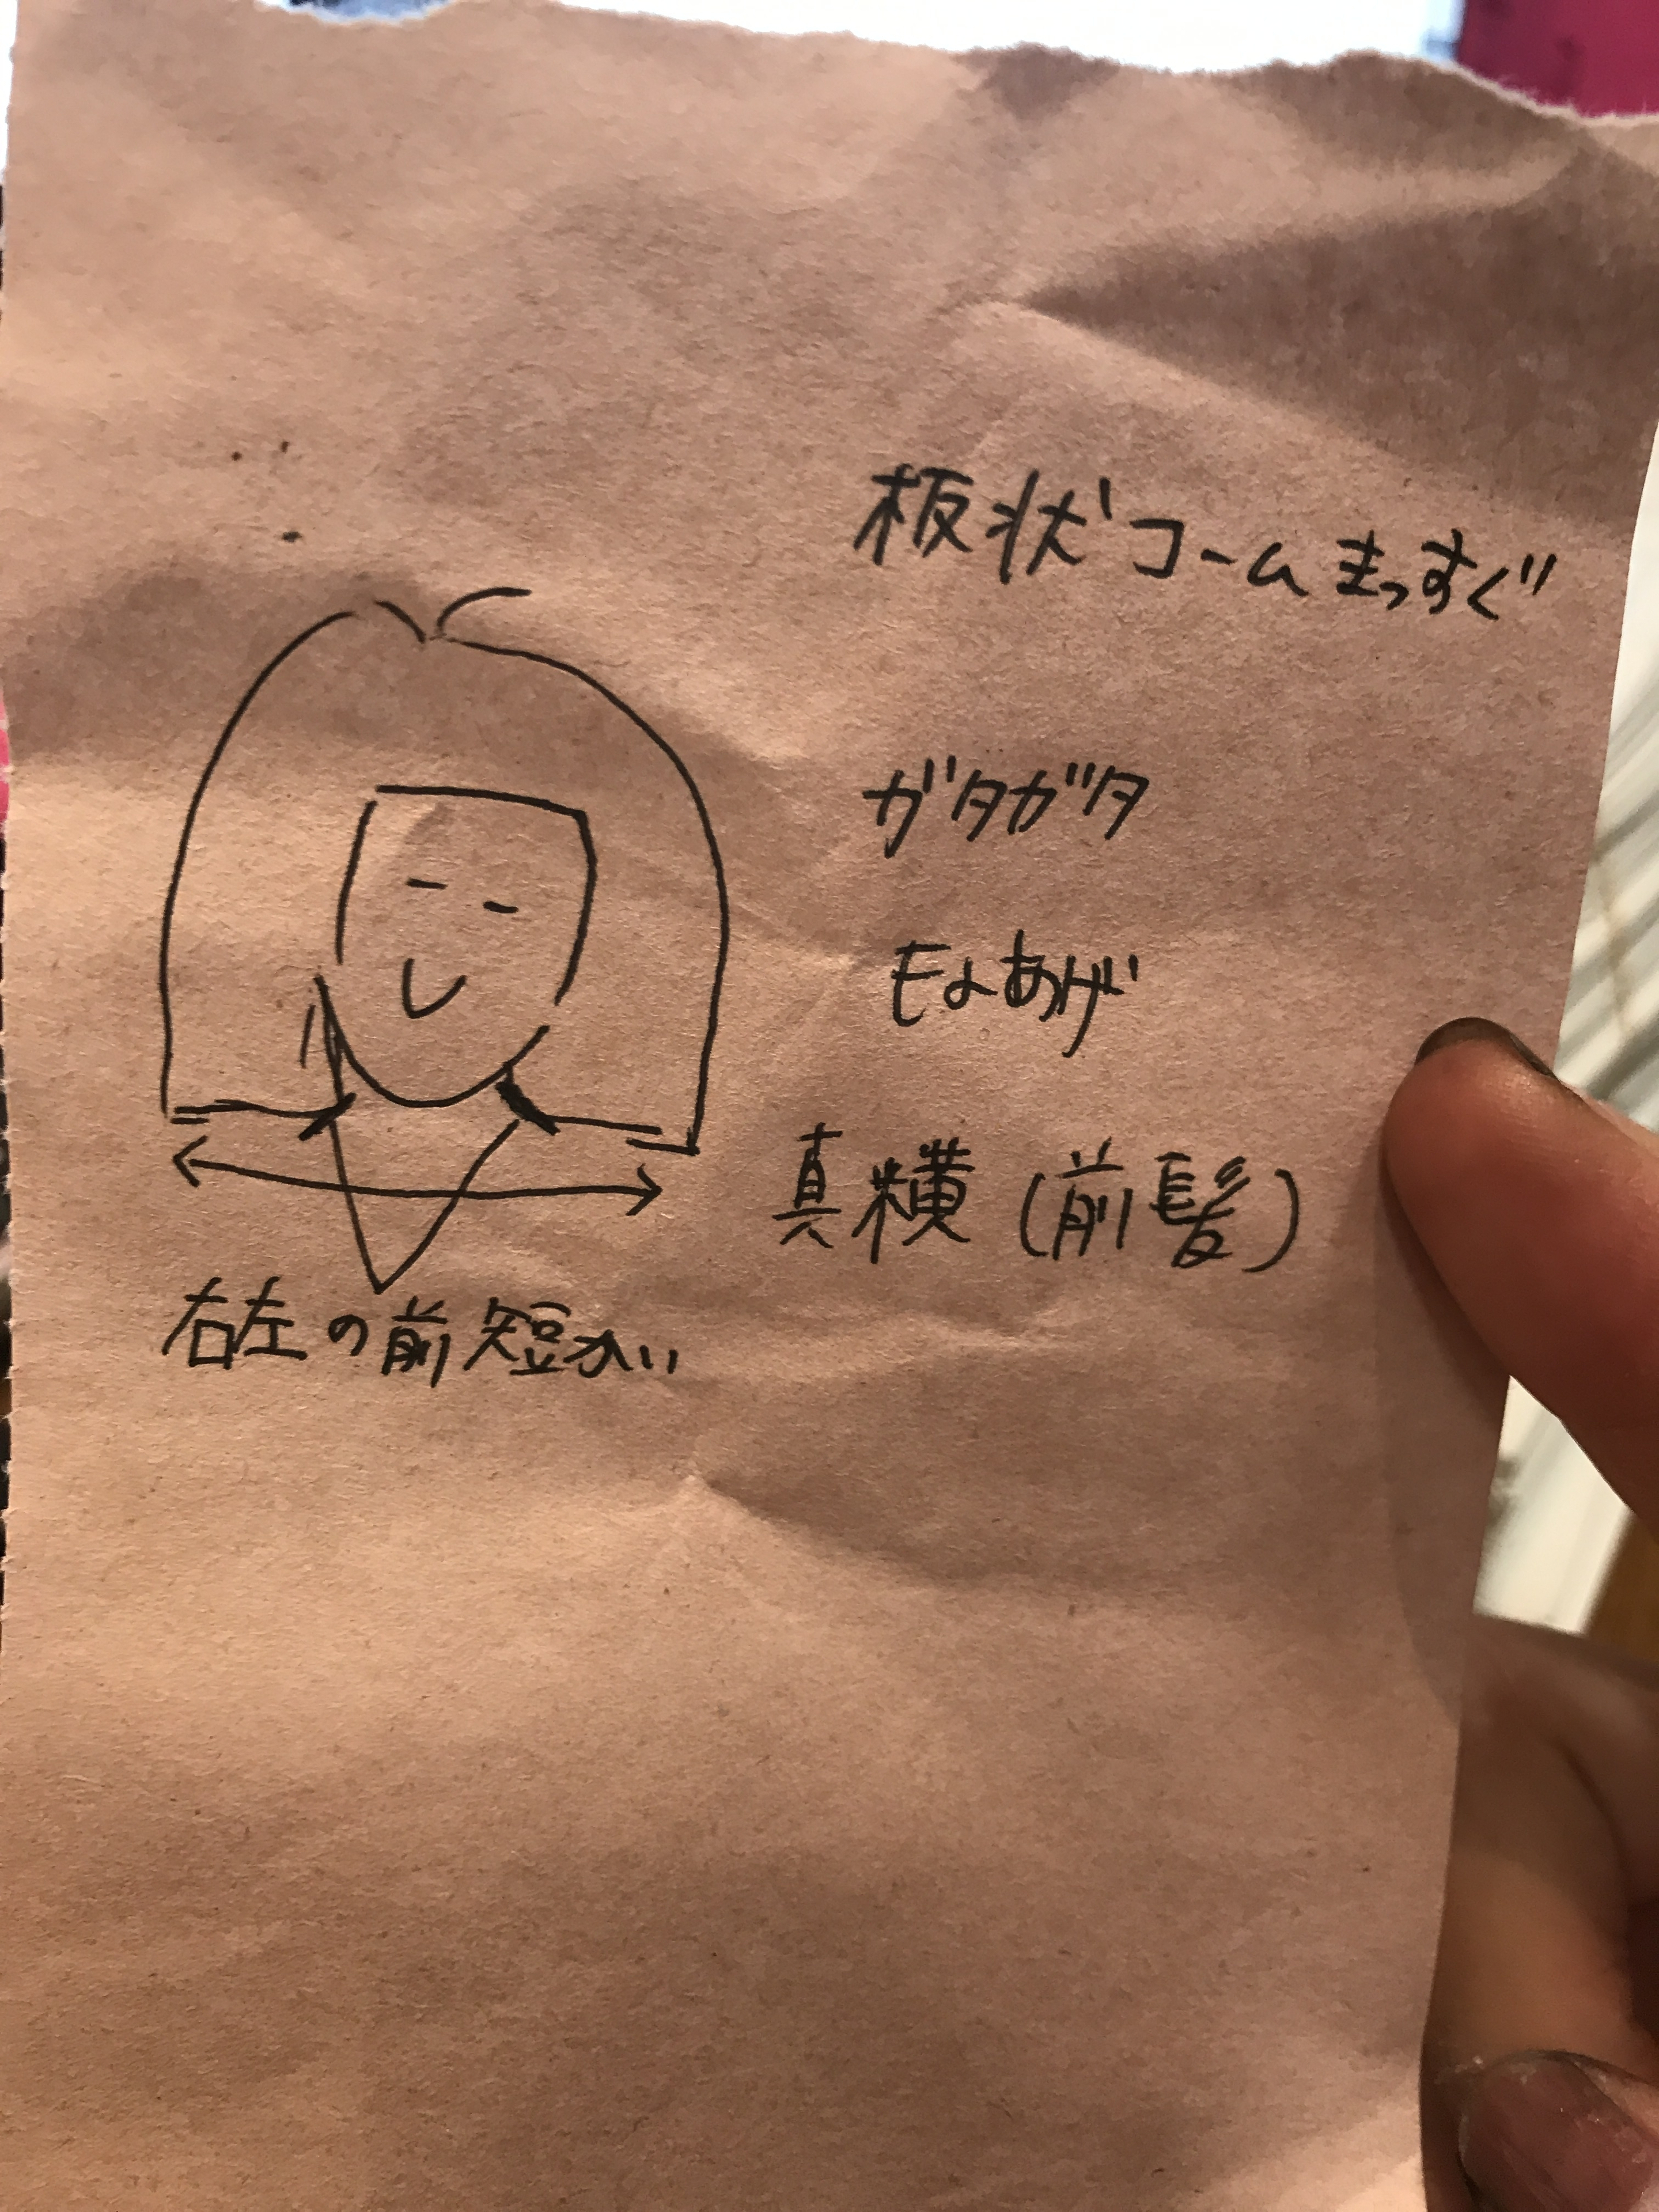 板状コームまっすぐ
ガタガタ
もよあげ
真横（前髪）
右左の前短かい